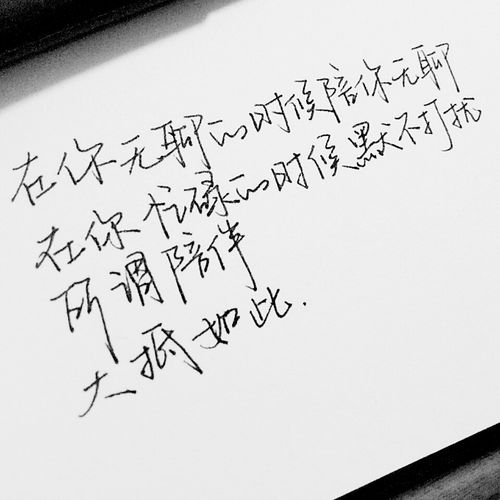 在你无聊的时候陪你无聊
在你忙碌的时候默不打扰
所谓陪伴
大抵如此.